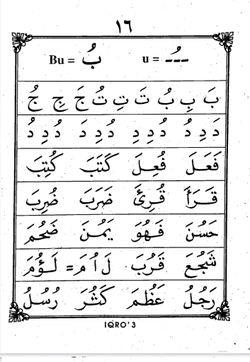 ١٦
Bu = بُ    u = ـُـ
بَ بِ بُ تَ تِ تُ جَ جِ جُ
دَ دِ دُ دُ دِ دِ دَ دَ دِ دُ
فَعَلَ فُعِلَ كَتَبَ كُتِبَ
قَرَأَ قُرِئَ ضَرَبَ ضُرِبَ
حَسُنَ فَهُوَ يَمُنَ ضَخُمَ
شَجُعَ قَرُبَ لَ اُ مَ = لَؤُمَ
رَجُلُ عَظُمَ كَثُرَ رُسُلُ
IQRO' 3